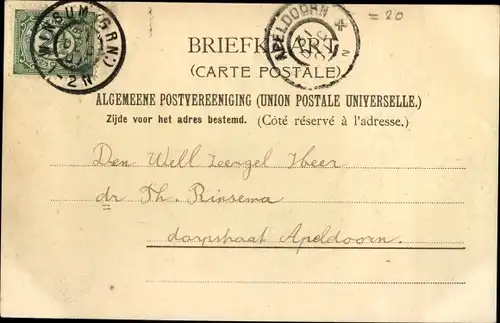 = 20
WINSUM (GRN.)
APELDOORN
BRIEFKAART.
(CARTE POSTALE)
ALGEMEENE POSTVEREENIGING (UNION POSTALE UNIVERSELLE.)
Zijde voor het adres bestemd. (Côté réservé à l'adresse.)
Den Well Zeergel Heer
dr Th. Rinsema
dorpstraat Apeldoorn.